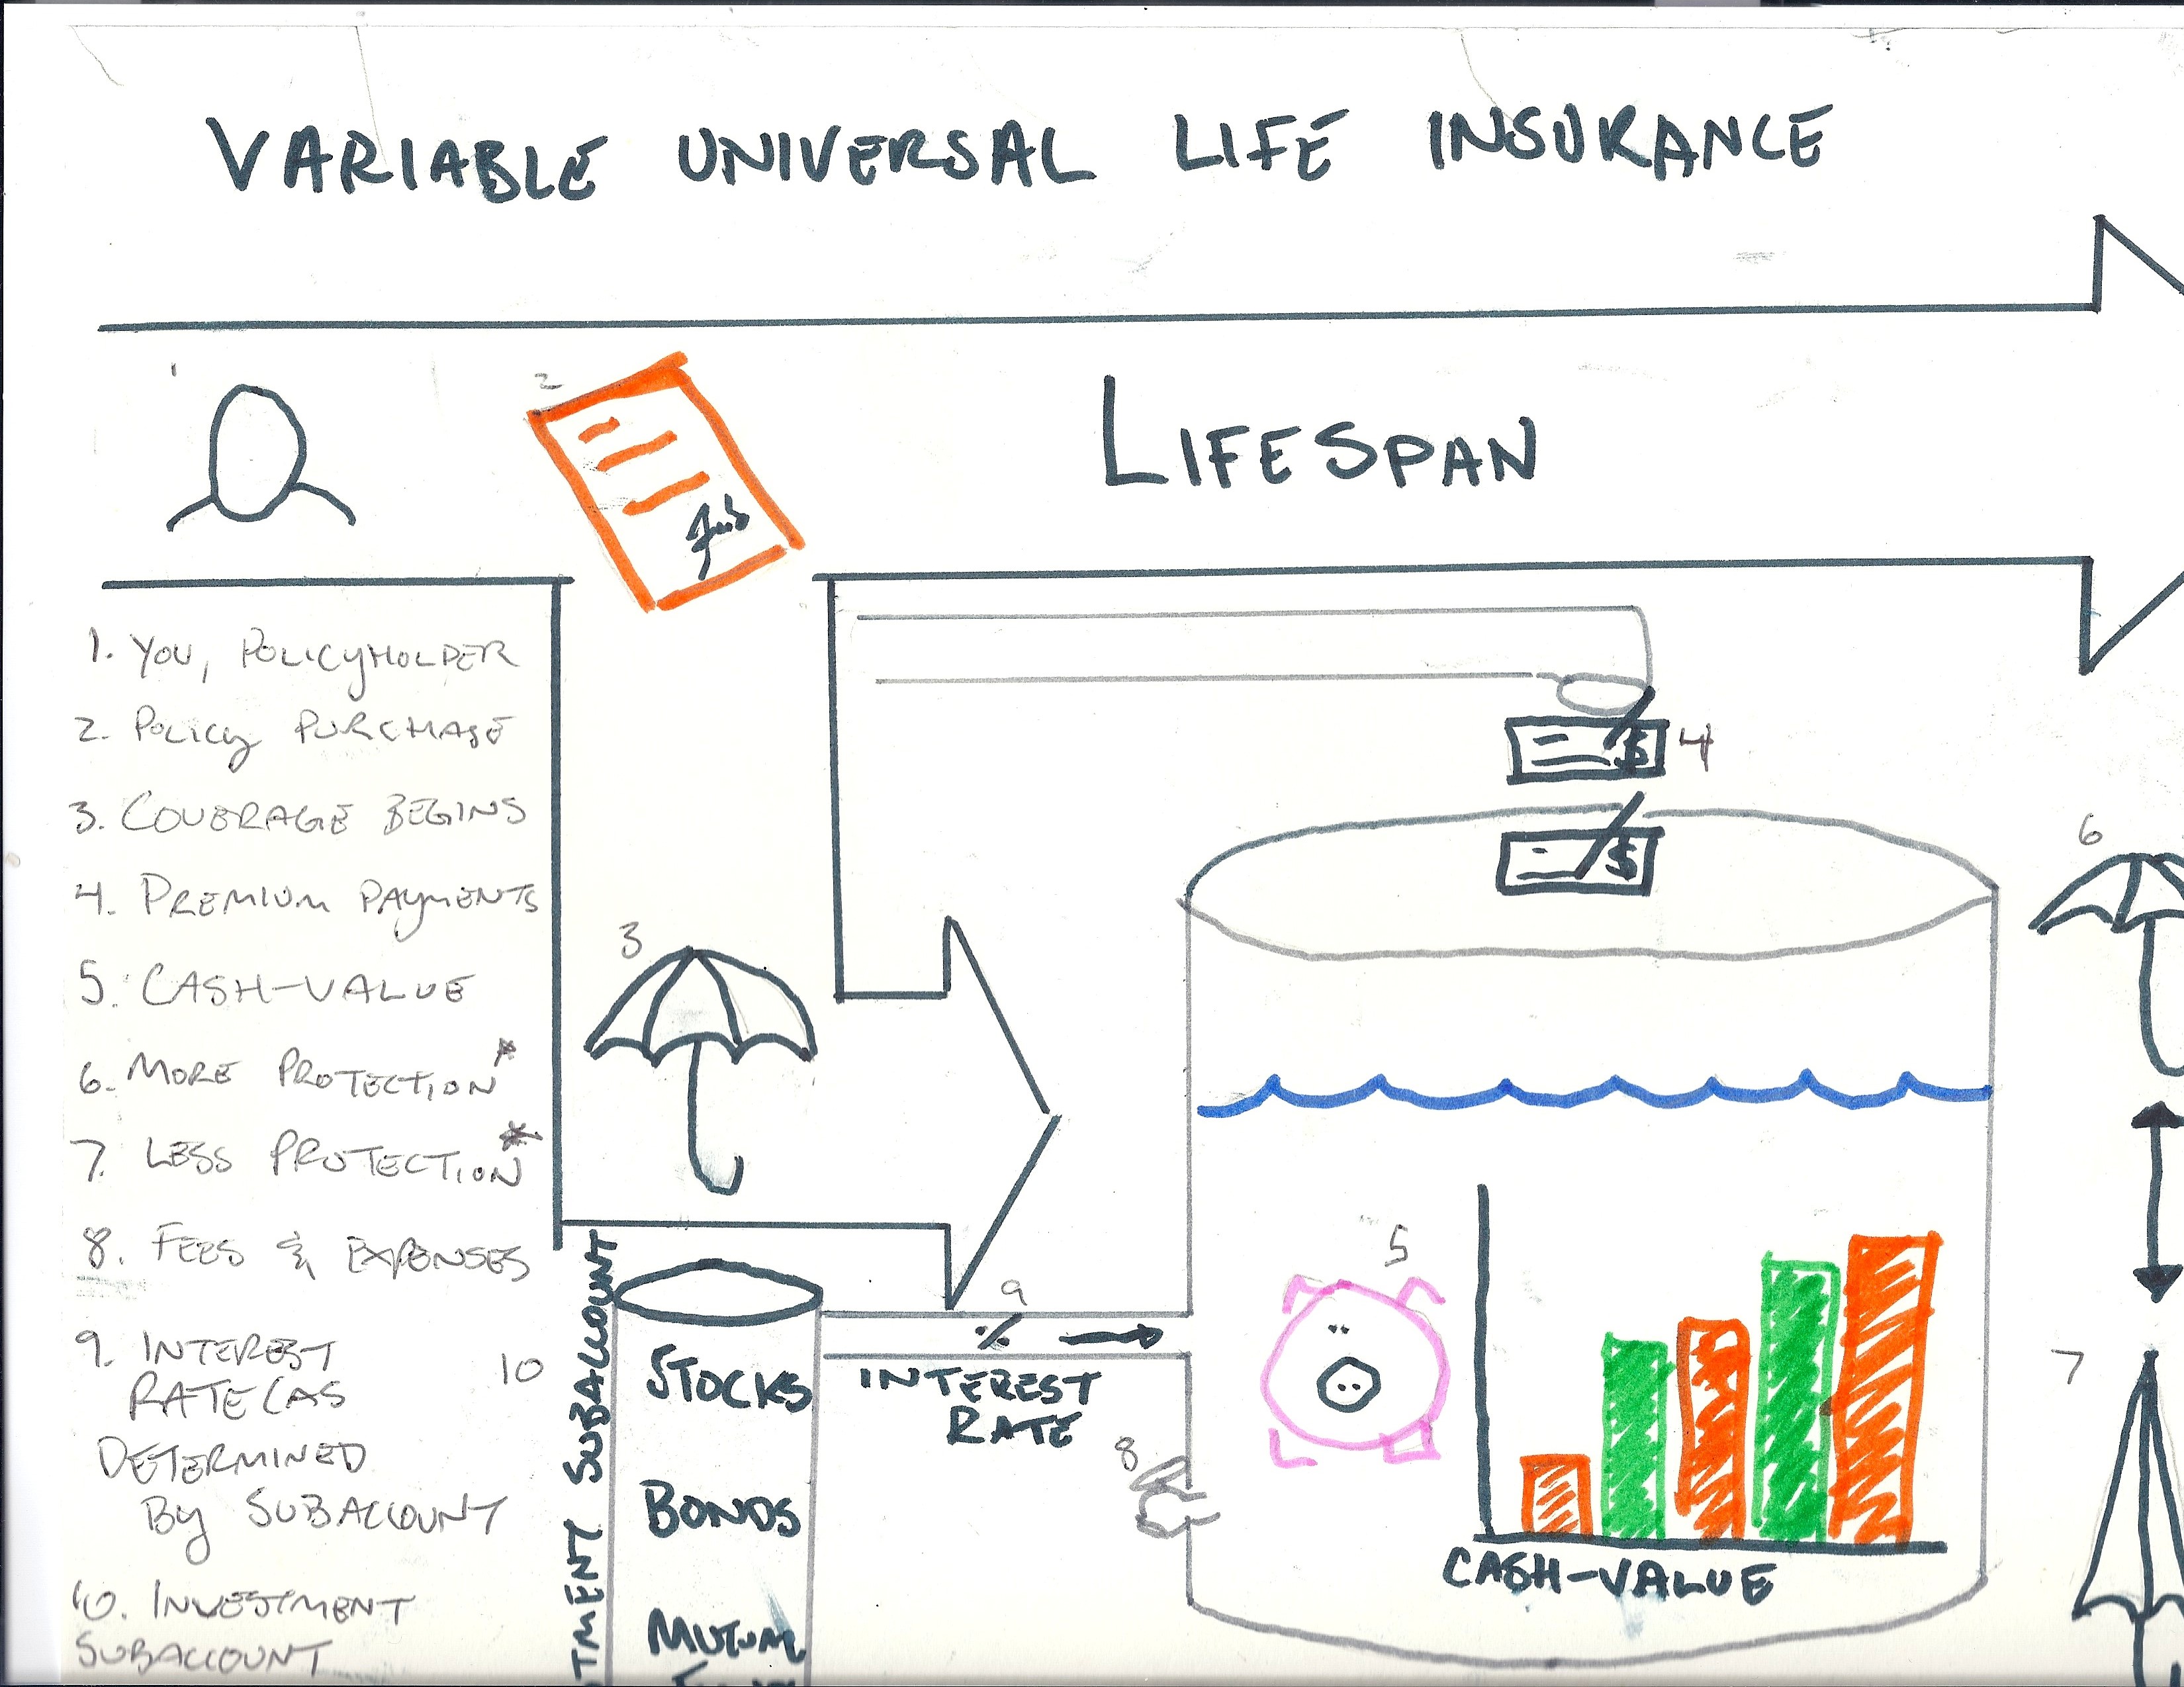 VARIABLE UNIVERSAL LIFE INSURANCE
1
2
LIFESPAN
1. YOU, POLICYHOLDER
2. POLICY PURCHASE
3. COVERAGE BEGINS
4. PREMIUM PAYMENTS
5. CASH-VALUE
6. MORE PROTECTION*
7. LESS PROTECTION*
8. FEES & EXPENSES
9. INTEREST
RATE (AS
DETERMINED
BY SUBACCOUNT
10. INVESTMENT
SUBACCOUNT
3
$ 4
$
6
5
7
8
9
%
INTEREST
RATE
10
TMENT SUBACCOUNT
STOCKS
BONDS
MUTUAL
CASH-VALUE